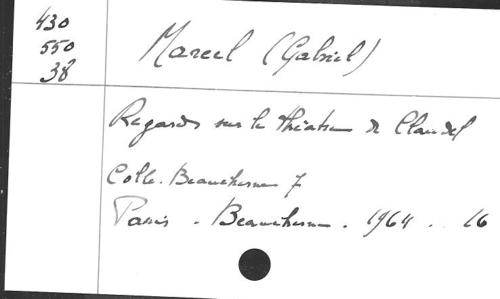 430
550
38
Marcel (Gabriel)
Regards sur le théâtre de Claudel
Coll. Beauchesne 7
Paris - Beauchesne - 1964 . . 16